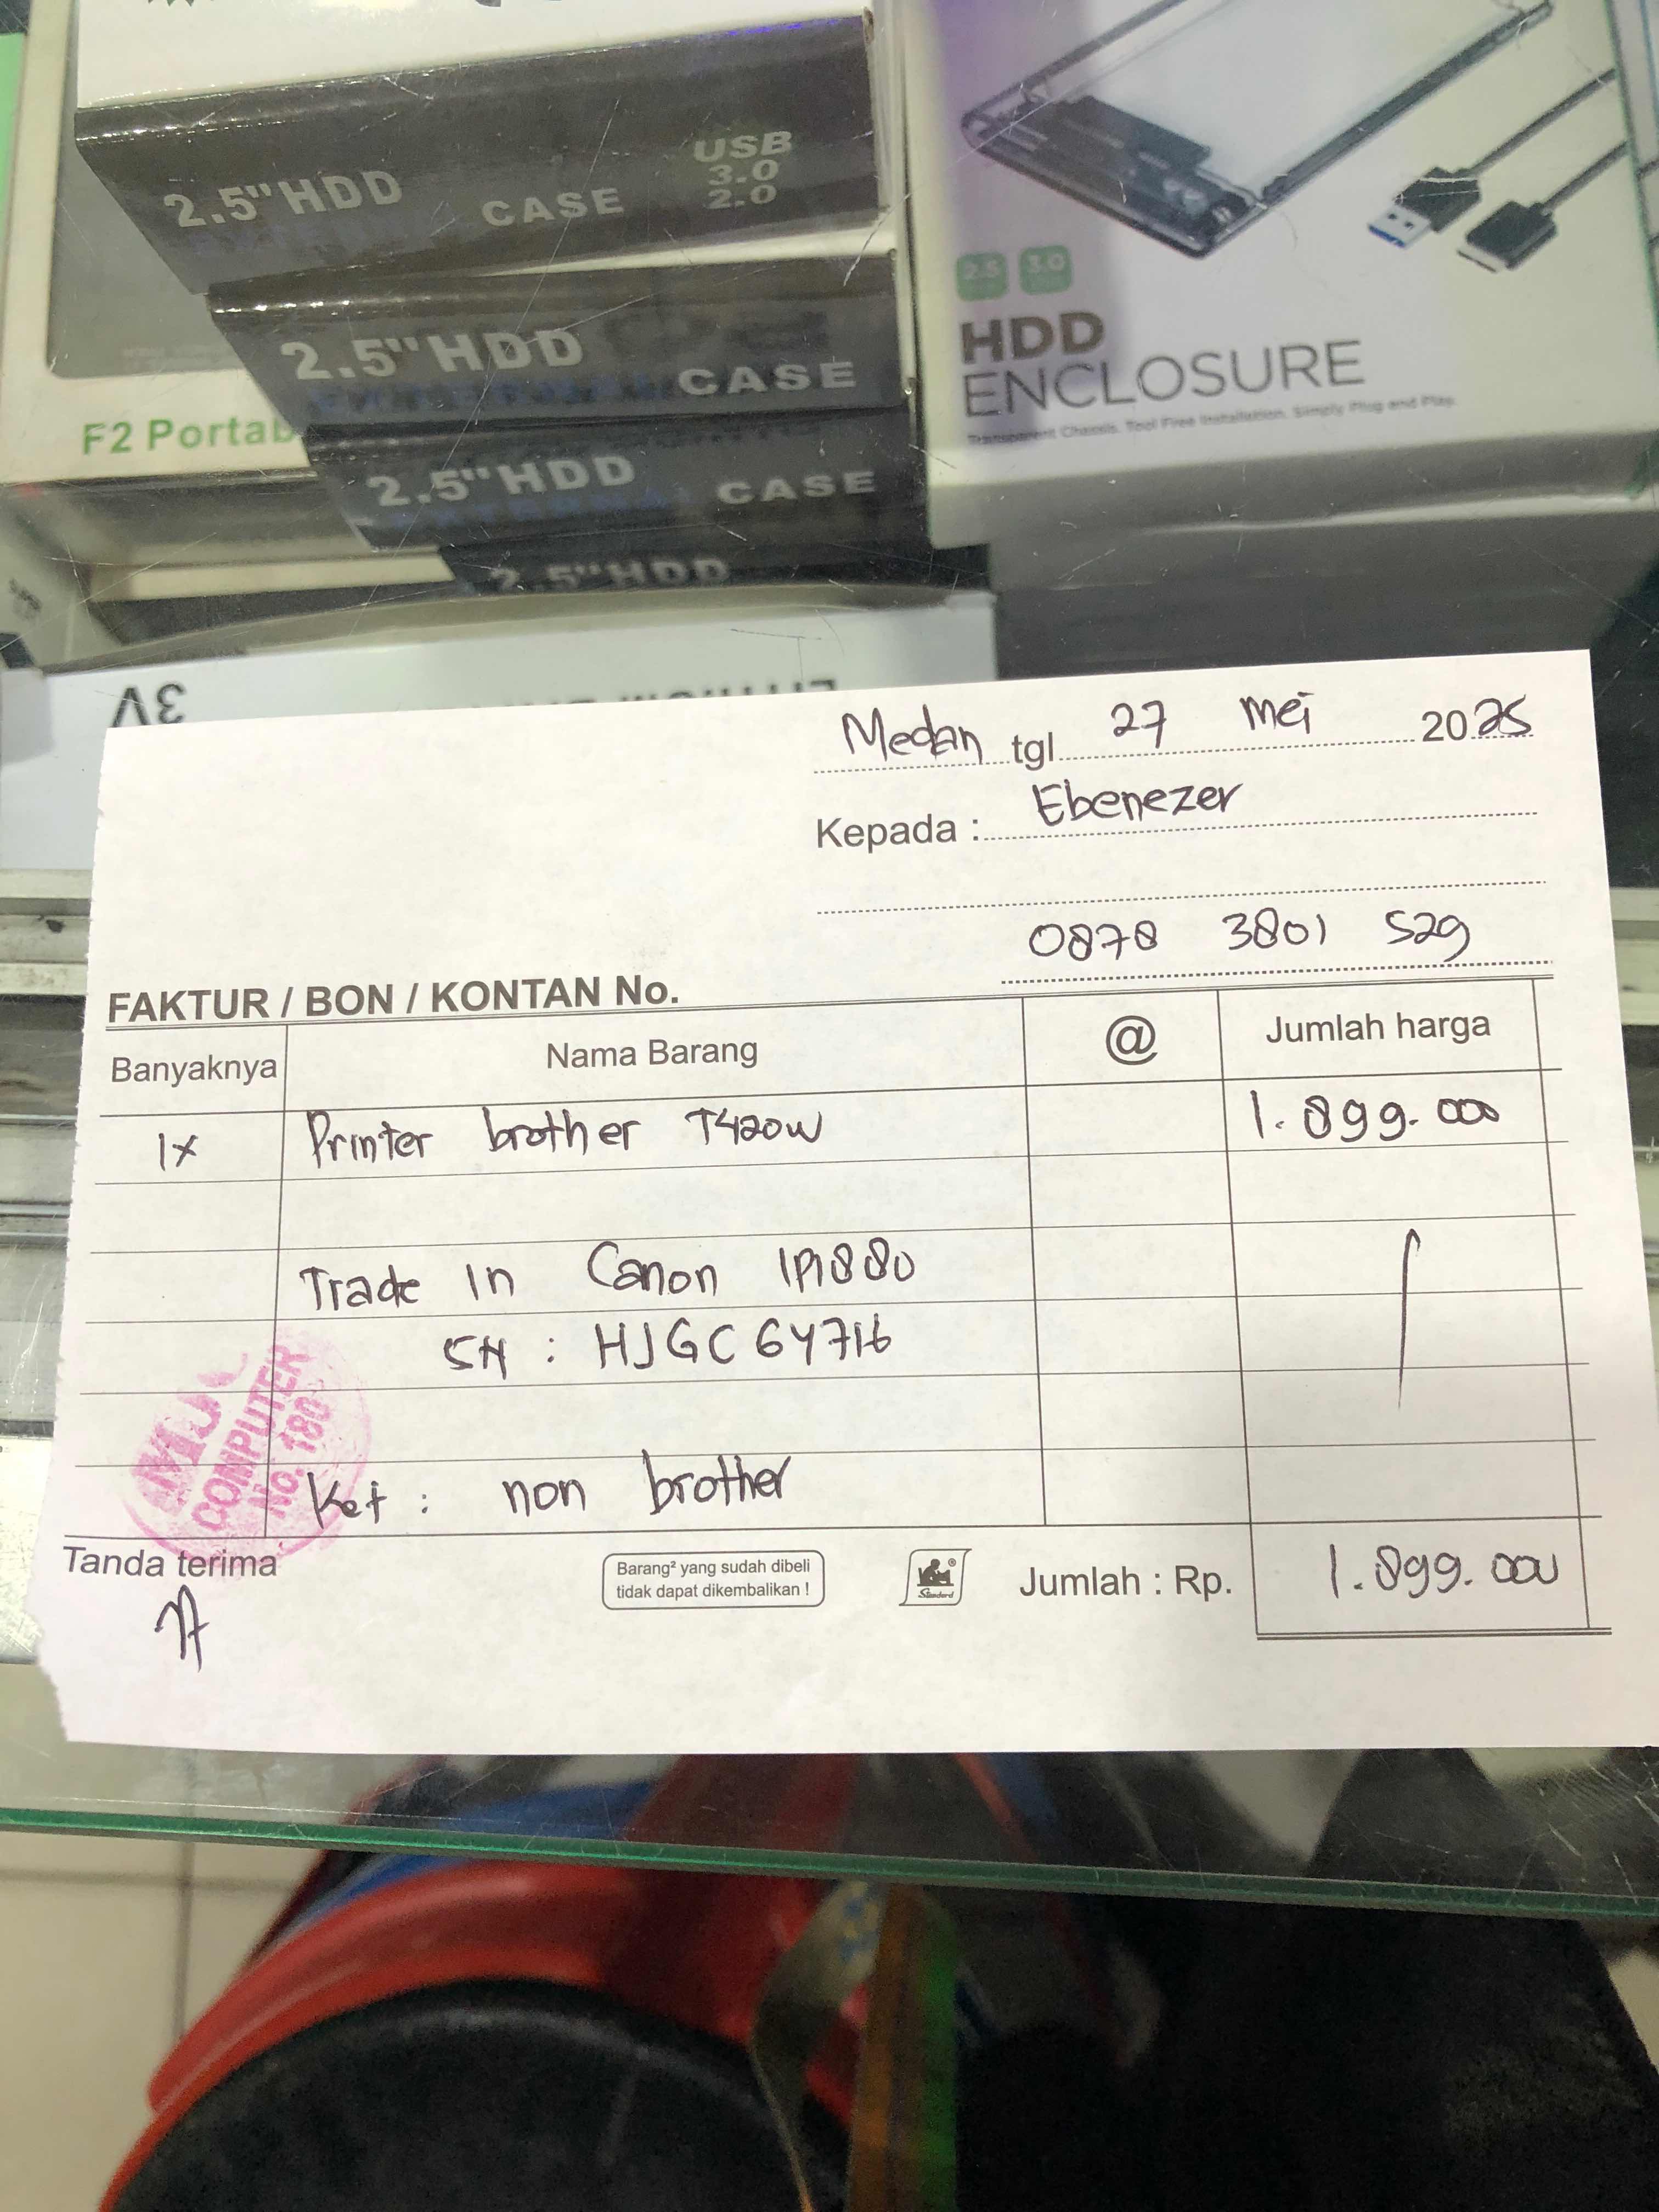 2.5"HDD CASE USB 3.0 2.0
2.5"HDD CASE
F2 Portab
2.5"HDD CASE
2.5"HDD
2.5 3.0
HDD
ENCLOSURE
Transparent Chassis. Tool Free Installation. Simply Plug and Play.
3V
Medan tgl 27 Mei 2025
Kepada : Ebenezer
0878 3801 529
FAKTUR / BON / KONTAN No.
Banyaknya Nama Barang @ Jumlah harga
1x Printer brother T420W 1.899.000
Trade In Canon IP1880
SN : HJGC64716
MJ
COMPUTER
No. 180
Ket : non brother
Tanda terima
Barang² yang sudah dibeli
tidak dapat dikembalikan !
Standard
Jumlah : Rp. 1.899.000